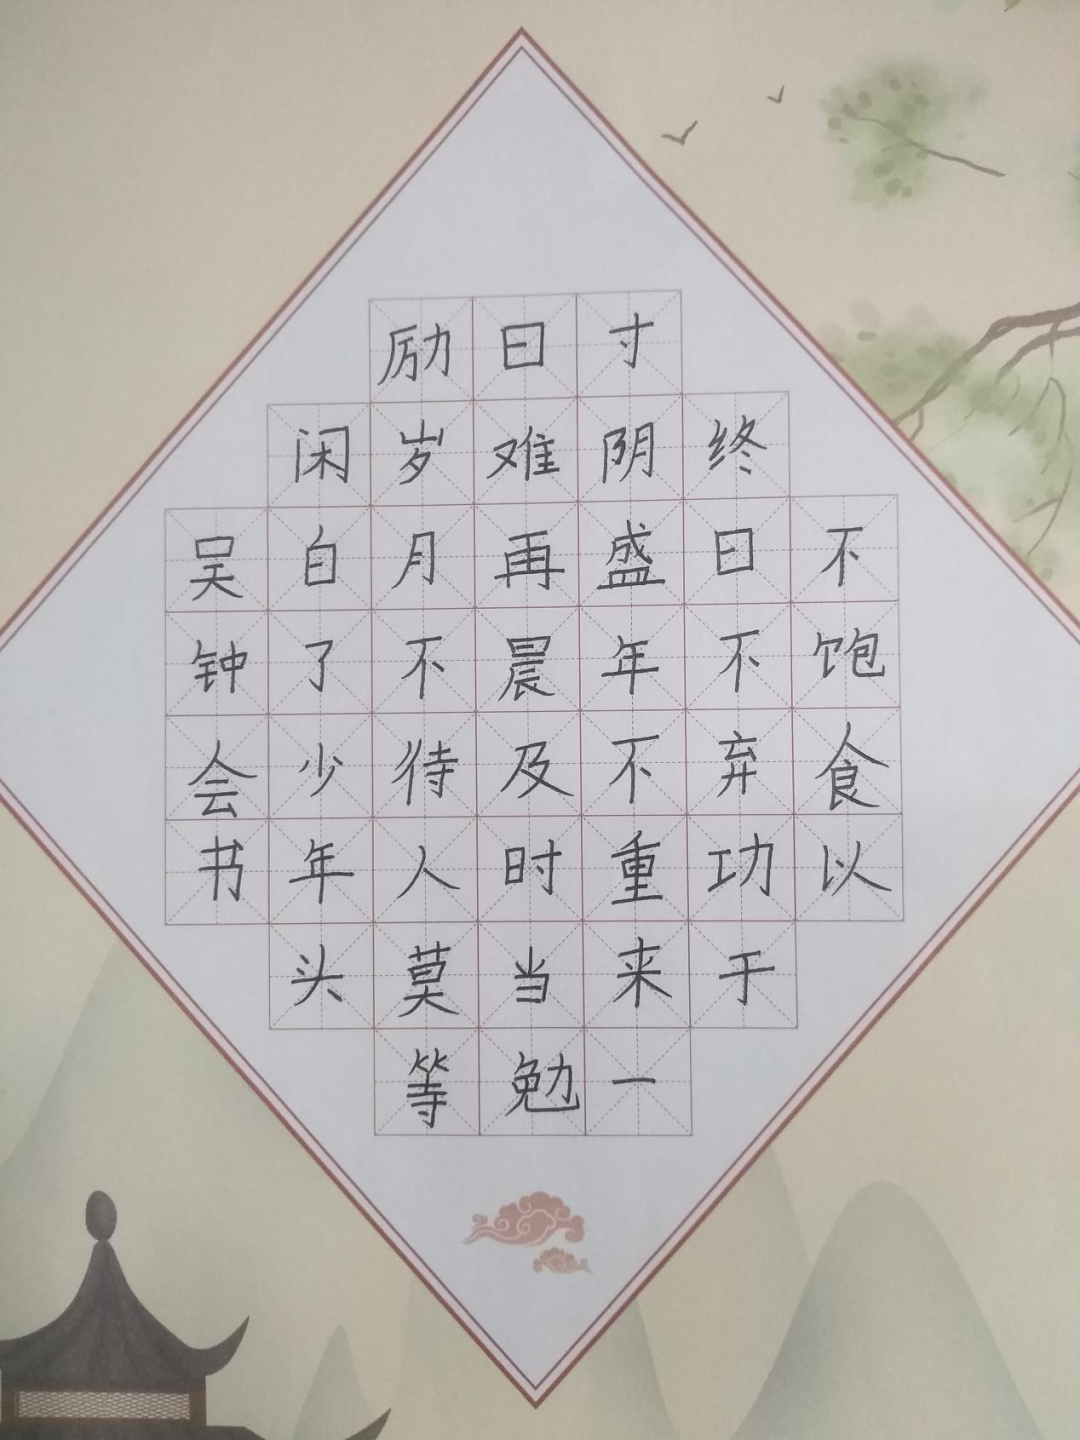 不饱食以
终日不弃功于
寸阴盛年不重来一
日难再晨及时当勉
励岁月不待人莫等
闲白了少年头
吴钟会书